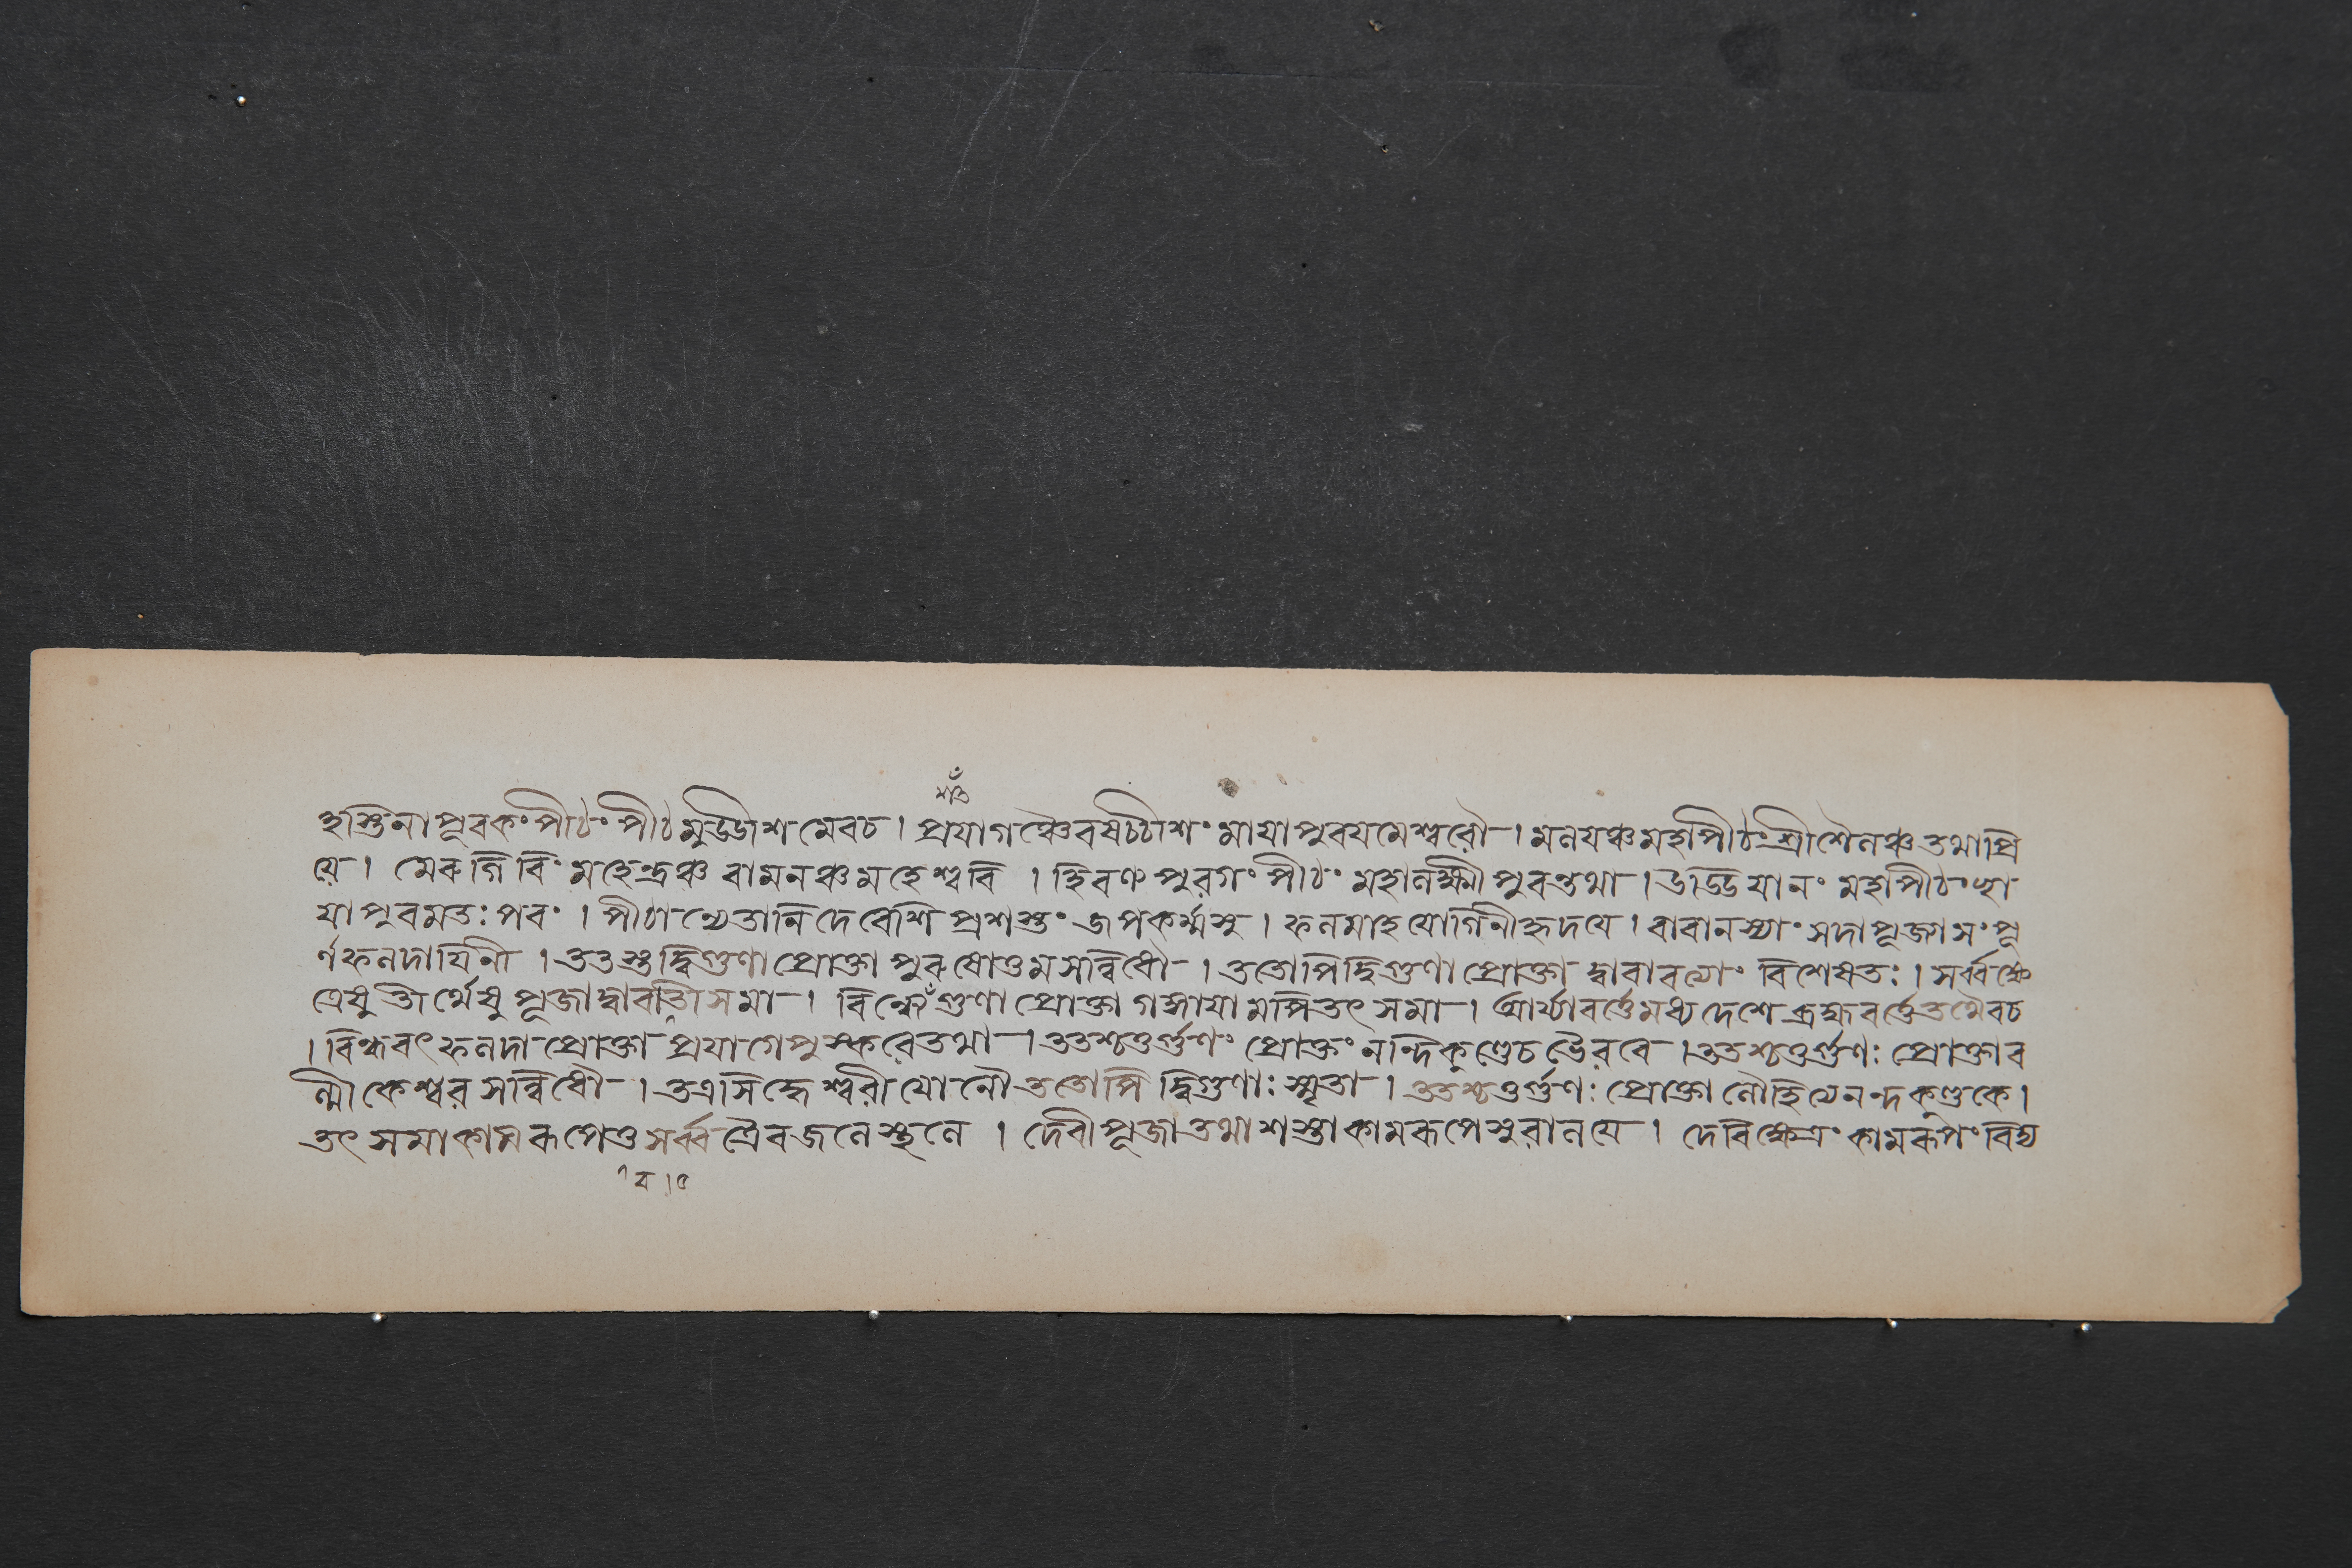 শঁত
হস্তিনাপূৰকং পীঠং পীঠমুড্ডাশ মেবচ । প্ৰযাগঞ্চৈবষঠ্ঠাশং মাযাপুৰযমেশ্বৰৌ । মনযঞ্চমহাপীঠং শ্ৰীশৈনঞ্চতথাপ্ৰি
যে । মেৰুগিৰিং মহেন্দ্ৰঞ্চ বামনঞ্চমহেশ্বৰি । হিৰণ্য পুৰগং পীঠং মহানক্ষ্মী পুৰন্তথা । উড্ডিযানং মহাপীঠং ছা
যাপুৰমতঃ পৰং । পীঠা ন্যেতানি দেবেশি প্ৰশস্তং জপকৰ্ম্মসু । ফনমাহ যোগিনীহৃদযে । বাৰানস্যাং সদাপূজাসংপূ
ৰ্ণফনদাযিনী । ততস্তুদ্বিগুণাপ্ৰোক্তা পুৰুষোত্তমসন্নিধৌ । ততোপিদ্বিগুণা প্ৰোক্তা দ্বাৰাবত্যাং বিশেষতঃ । সৰ্ব্বক্ষে
ত্ৰেষু তীৰ্থেষু পূজাদ্বাৰবতীসমা । বিন্ধ্যে গুণা প্ৰোক্তা গঙ্গাযামপিতৎ সমা । আৰ্য্যাবৰ্ত্তেমধ্য দেশে ব্ৰহ্মাবৰ্ত্তেতথৈবচ
। বিন্ধ্যবৎ ফনদা প্ৰোক্তা প্ৰযাগেপুস্কৰেতথা । ততশ্চতুৰ্গুণং প্ৰোক্তং নন্দিকুণ্ডেচভৈৰবে । ততশ্চতুৰ্গুণঃ প্ৰোক্তাব
ল্মীকেশ্বৰ সন্নিধৌ । তত্ৰসিদ্ধেশ্বৰীযোনৌ ততোপি দ্বিগুণাঃ স্মৃতা । ততশ্চতুৰ্গুণঃ প্ৰোক্তা নৌহিত্যেনন্দকুণ্ডকে ।
তৎ সমাকামৰূপেতু সৰ্ব্বত্ৰৈবজনেস্থনে । দেবীপূজাতথাশস্তাকামৰূপেসুৰানযে । দেবিক্ষেত্ৰং কামৰূপং বিদ্য